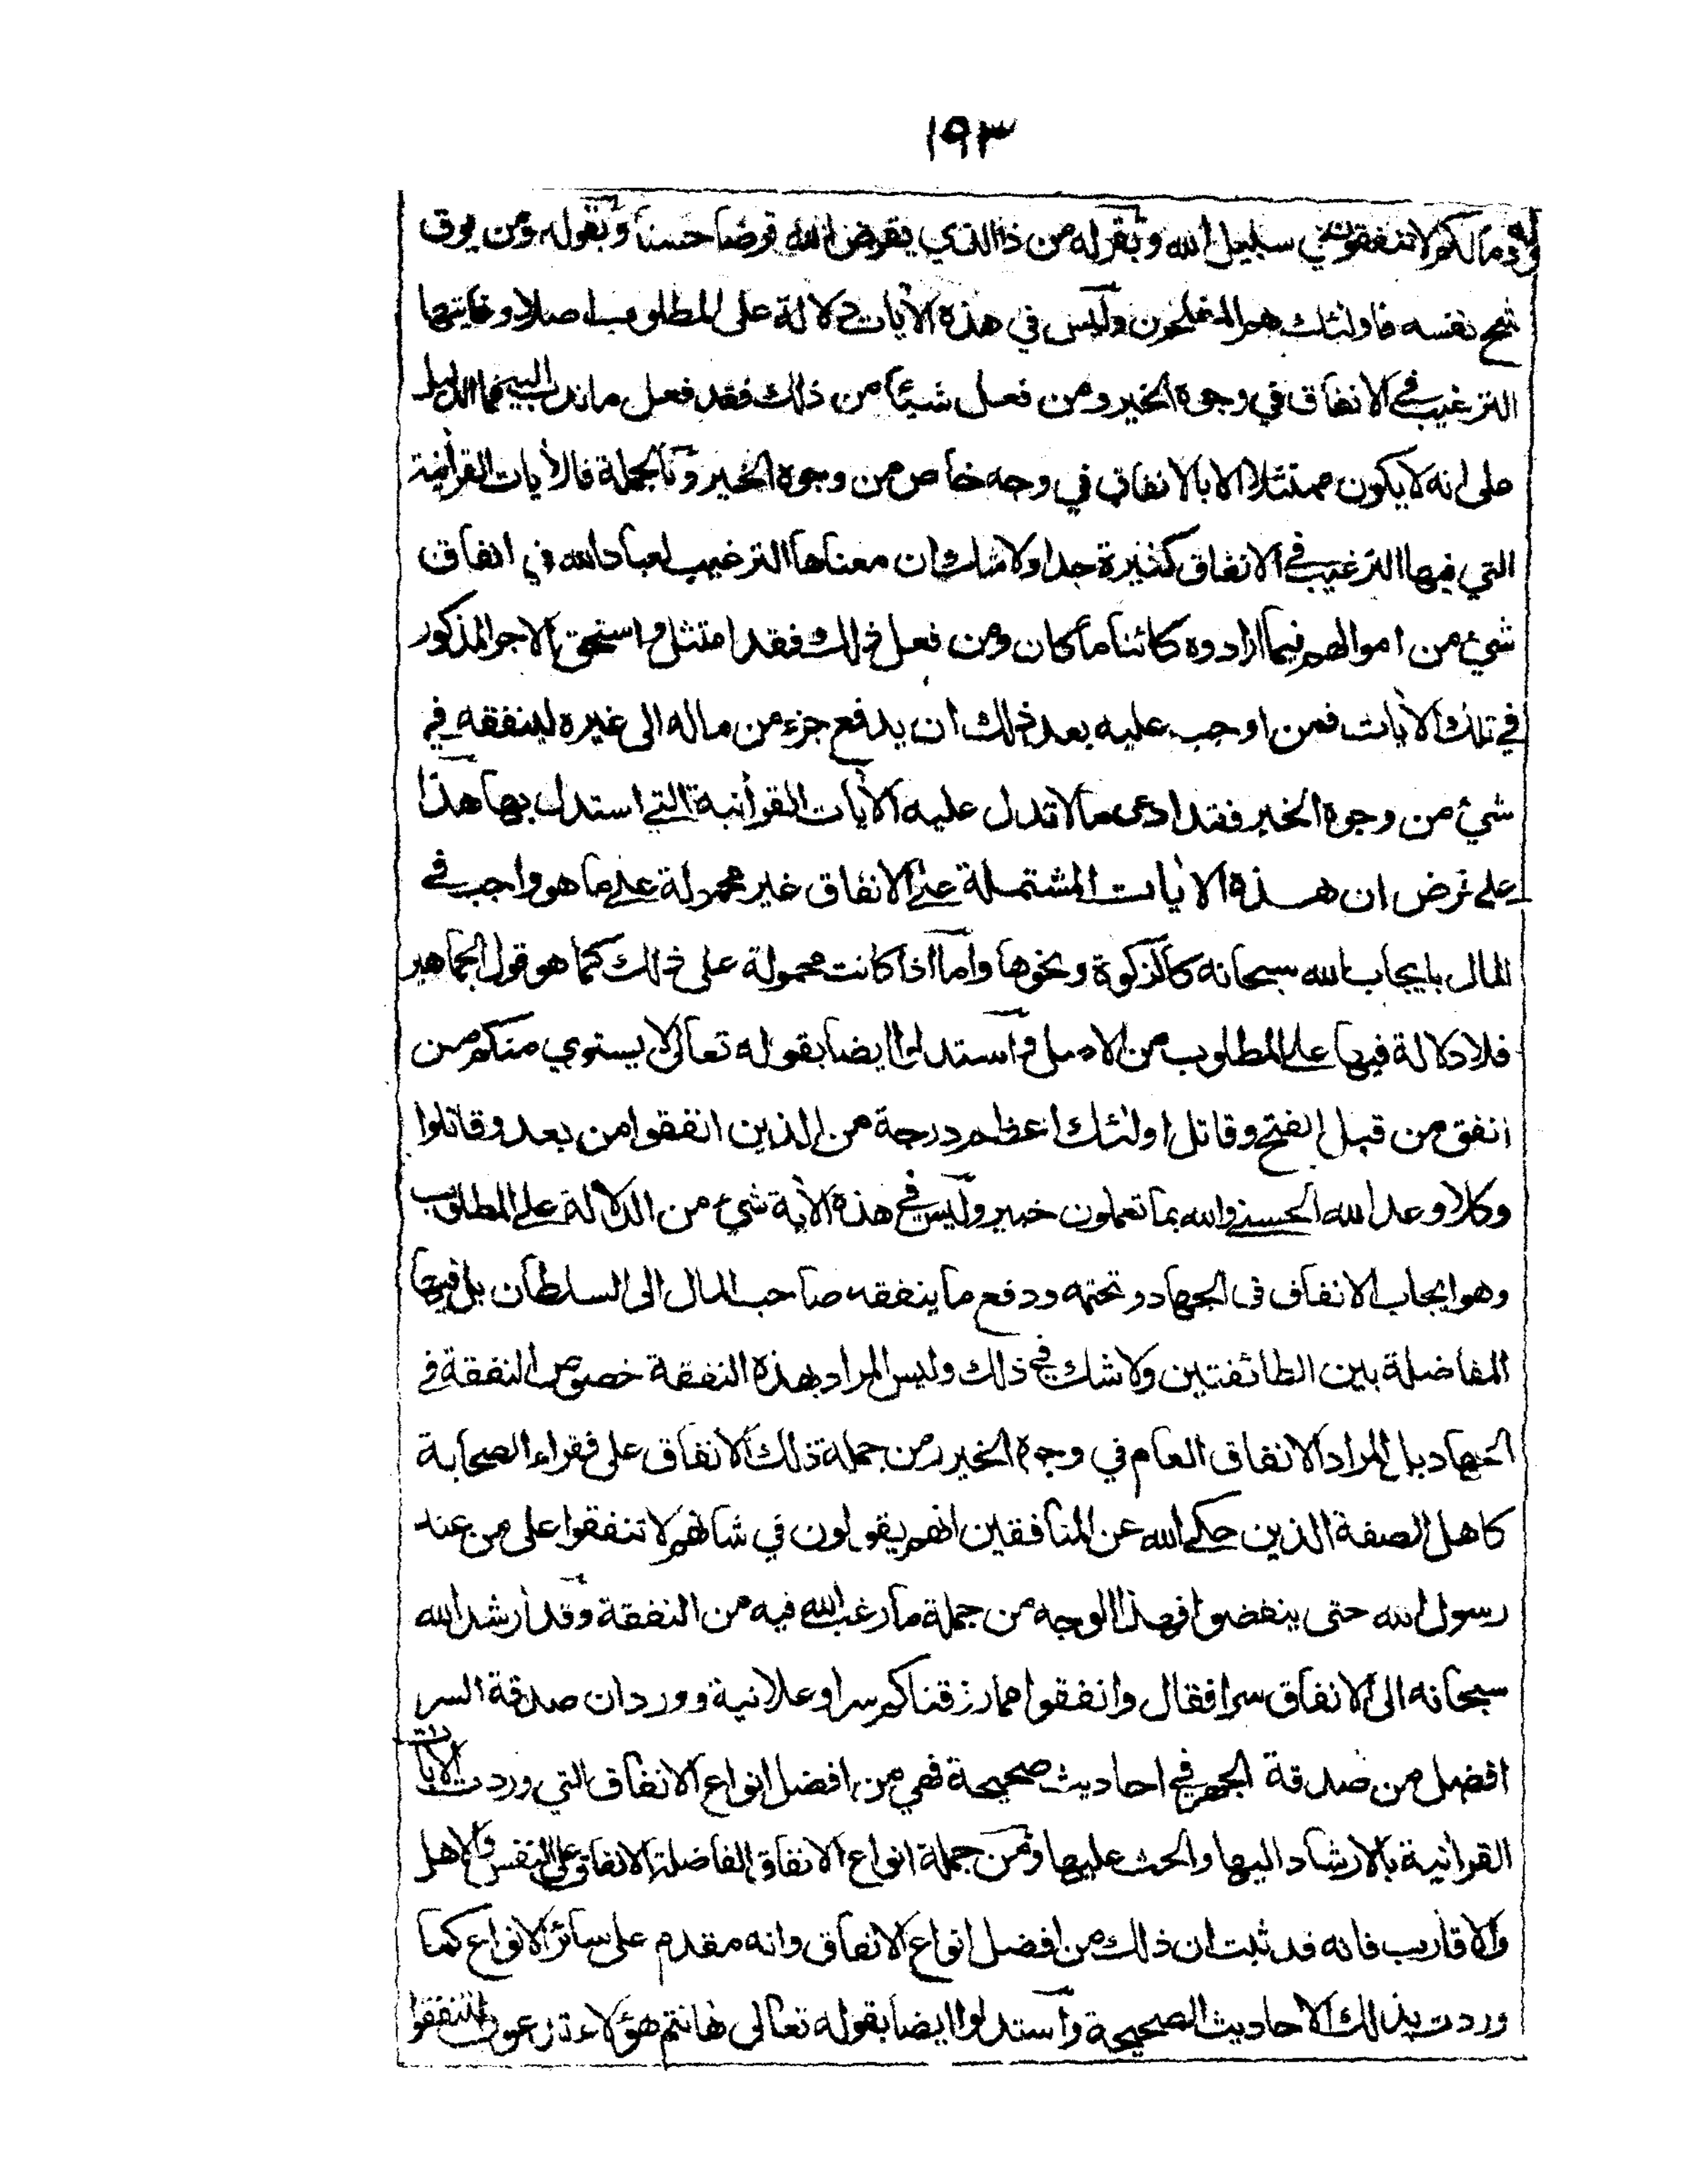 ١٩٣
وقوله ومالكم لا تنفقون في سبيل الله وبقوله من ذا الذي يقرض الله قرضا حسنا وبقوله ومن يوق
شح نفسه فاولئك هم المفلحون وليس في هذه الأيات دلالة على المطلوب اصلا وغايتها
الترغيب في الانفاق في وجوه الخير ومن فعل شيئا من ذلك فقد فعل ما ندب اليه فما الدليل
على انه لا يكون ممتثلا الا بالانفاق في وجه خاص من وجوه الخير وبالجملة فالأيات القرأنية
التي فيها الترغيب في الانفاق كثيرة جدا ولا شك ان معناها الترغيب لعباد الله في انفاق
شيء من اموالهم فيما ارادوه كائنا ما كان ومن فعل ذلك فقد امتثل واستحق الاجر المذكور
في تلك الأيات فمن اوجب عليه بعد ذلك ان يدفع جزء من ماله الى غيره لينفقه في
شيء من وجوه الخير فقد ادعى ما لا تدل عليه الأيات القرأنية التي استدل بها هذا
على فرض ان هذه الأيات المشتملة على الانفاق غير محمولة على ما هو واجب في
المال بايجاب الله سبحانه كالزكوة ونحوها واما اذا كانت محمولة على ذلك كما هو قول الجماهير
فلا دلالة فيها على المطلوب من الاصل واستدلوا ايضا بقوله تعالى لا يستوي منكم من
انفق من قبل الفتح وقاتل اولئك اعظم درجة من الذين انفقوا من بعد وقاتلوا
وكلا وعد الله الحسنى والله بما تعملون خبير وليس في هذه الأية شيء من الدلالة على المطلوب
وهو ايجاب الانفاق في الجهاد وتحتمه ودفع ما ينفقه صاحب المال الى السلطان بل فيها
المفاضلة بين الطائفتين ولا شك في ذلك وليس المراد بهذه النفقة خصوص النفقة في
الجهاد بل المراد الانفاق العام في وجوه الخير ومن جملة ذلك الانفاق على فقراء الصحابة
كاهل الصفة الذين حكى الله عن المنافقين انهم يقولون في شانهم لا تنفقوا على من عند
رسول الله حتى ينفضوا فهذا الوجه من جملة ما رغب الله فيه من النفقة وقد أرشد الله
سبحانه الى الانفاق سرا فقال وانفقوا مما رزقناكم سرا وعلانية وورد ان صدقة السر
افضل من صدقة الجهر في احاديث صحيحة فهي من افضل انواع الانفاق التي وردت الأيات
القرأنية بالارشاد اليها والحث عليها ومن جملة انواع الانفاق الفاضلة الانفاق على النفس والاهل
والاقارب فانه قد ثبت ان ذلك من افضل انواع الانفاق وانه مقدم على سائر الانواع كما
وردت بذلك الاحاديث الصحيحة واستدلوا ايضا بقوله تعالى هٰانتم هؤلاء تدعون لتنفقوا